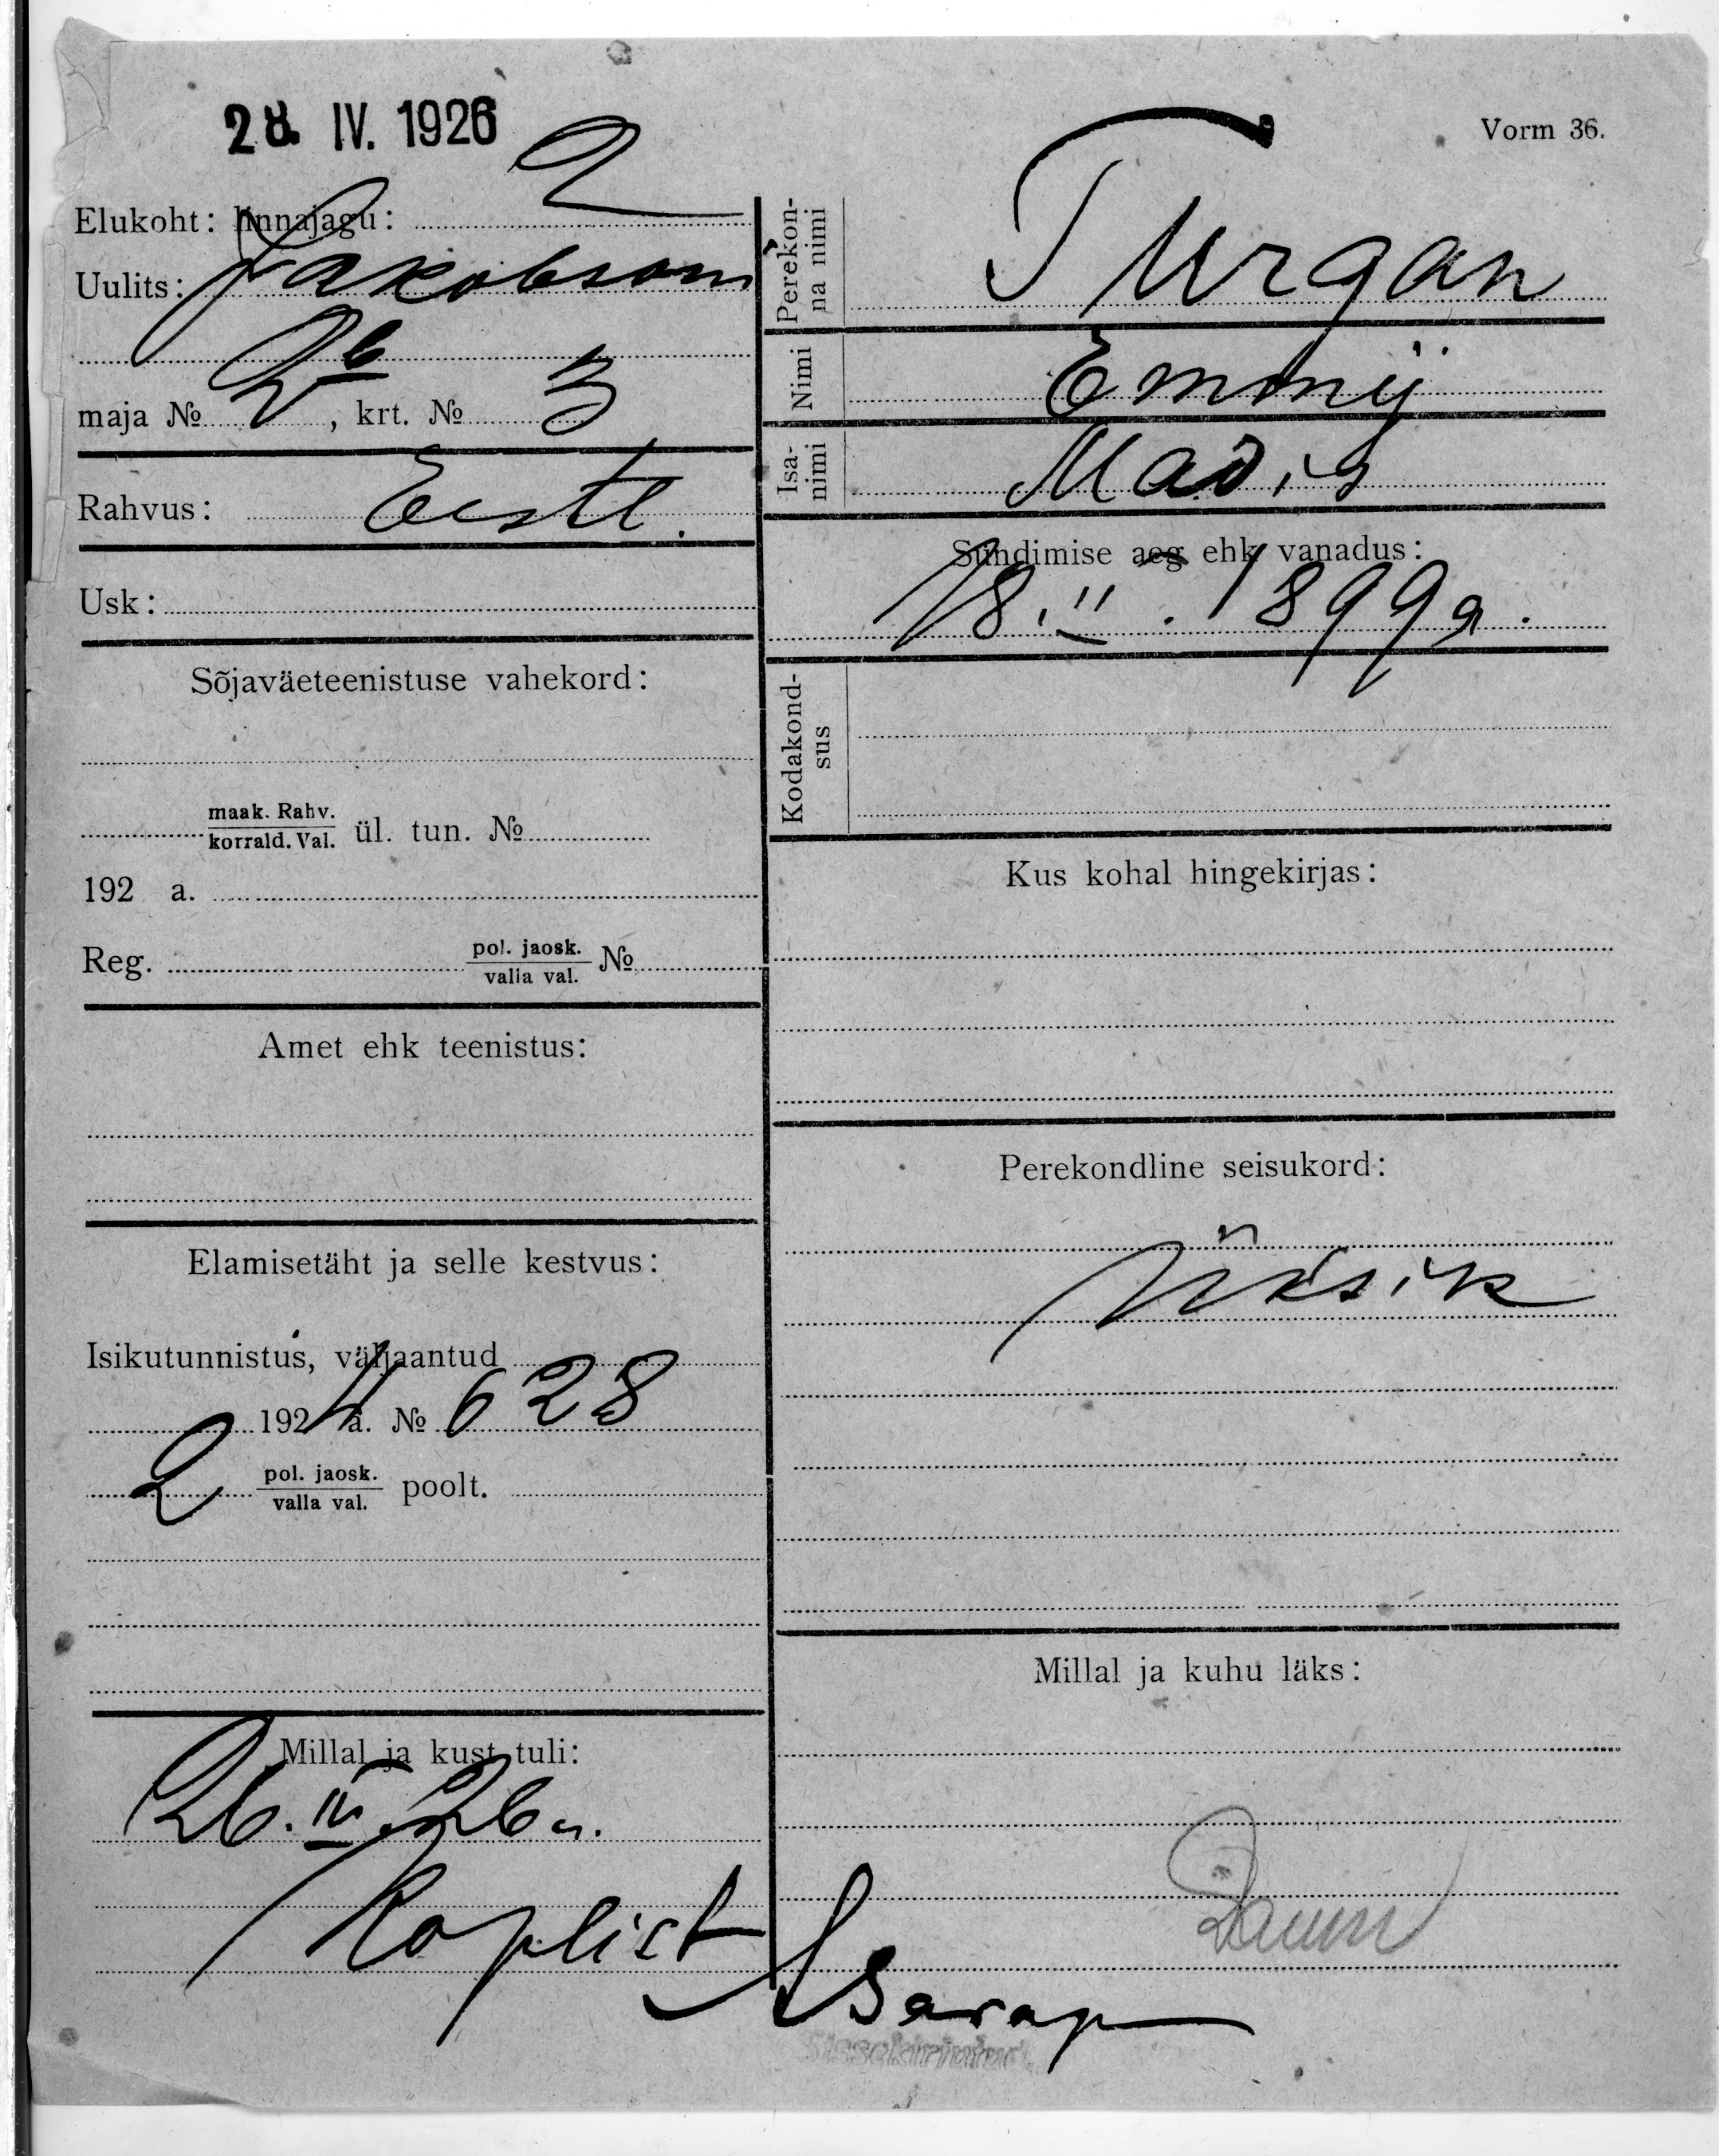 28. IV. 1926
Vorm 36.
Elukoht: linnajagu: 2
Uulits: Jakobsoni
maja № 2b, krt. № 3
Rahvus: Eestl.
Usk:
Sõjaväeteenistuse vahekord:
maak. Rahv.
korrald. Val. ül. tun. №
192 a.
Reg. pol. jaosk.
valla val. №
Amet ehk teenistus:
Elamisetäht ja selle kestvus:
Isikutunnistus, väljaantud
1924 a. № 628
2 pol. jaosk.
valla val. poolt.
Millal ja kust tuli:
26. IV 26 a.
Koplist
Perekon-
na nimi Turgan
Nimi Emmy
Isa-
nimi Madis
Sündimise aeg ehk vanadus:
18. II. 1899 a.
Kodakond-
sus
Kus kohal hingekirjas:
Perekondline seisukord:
Üksik
Millal ja kuhu läks:
Sissekirjutatud